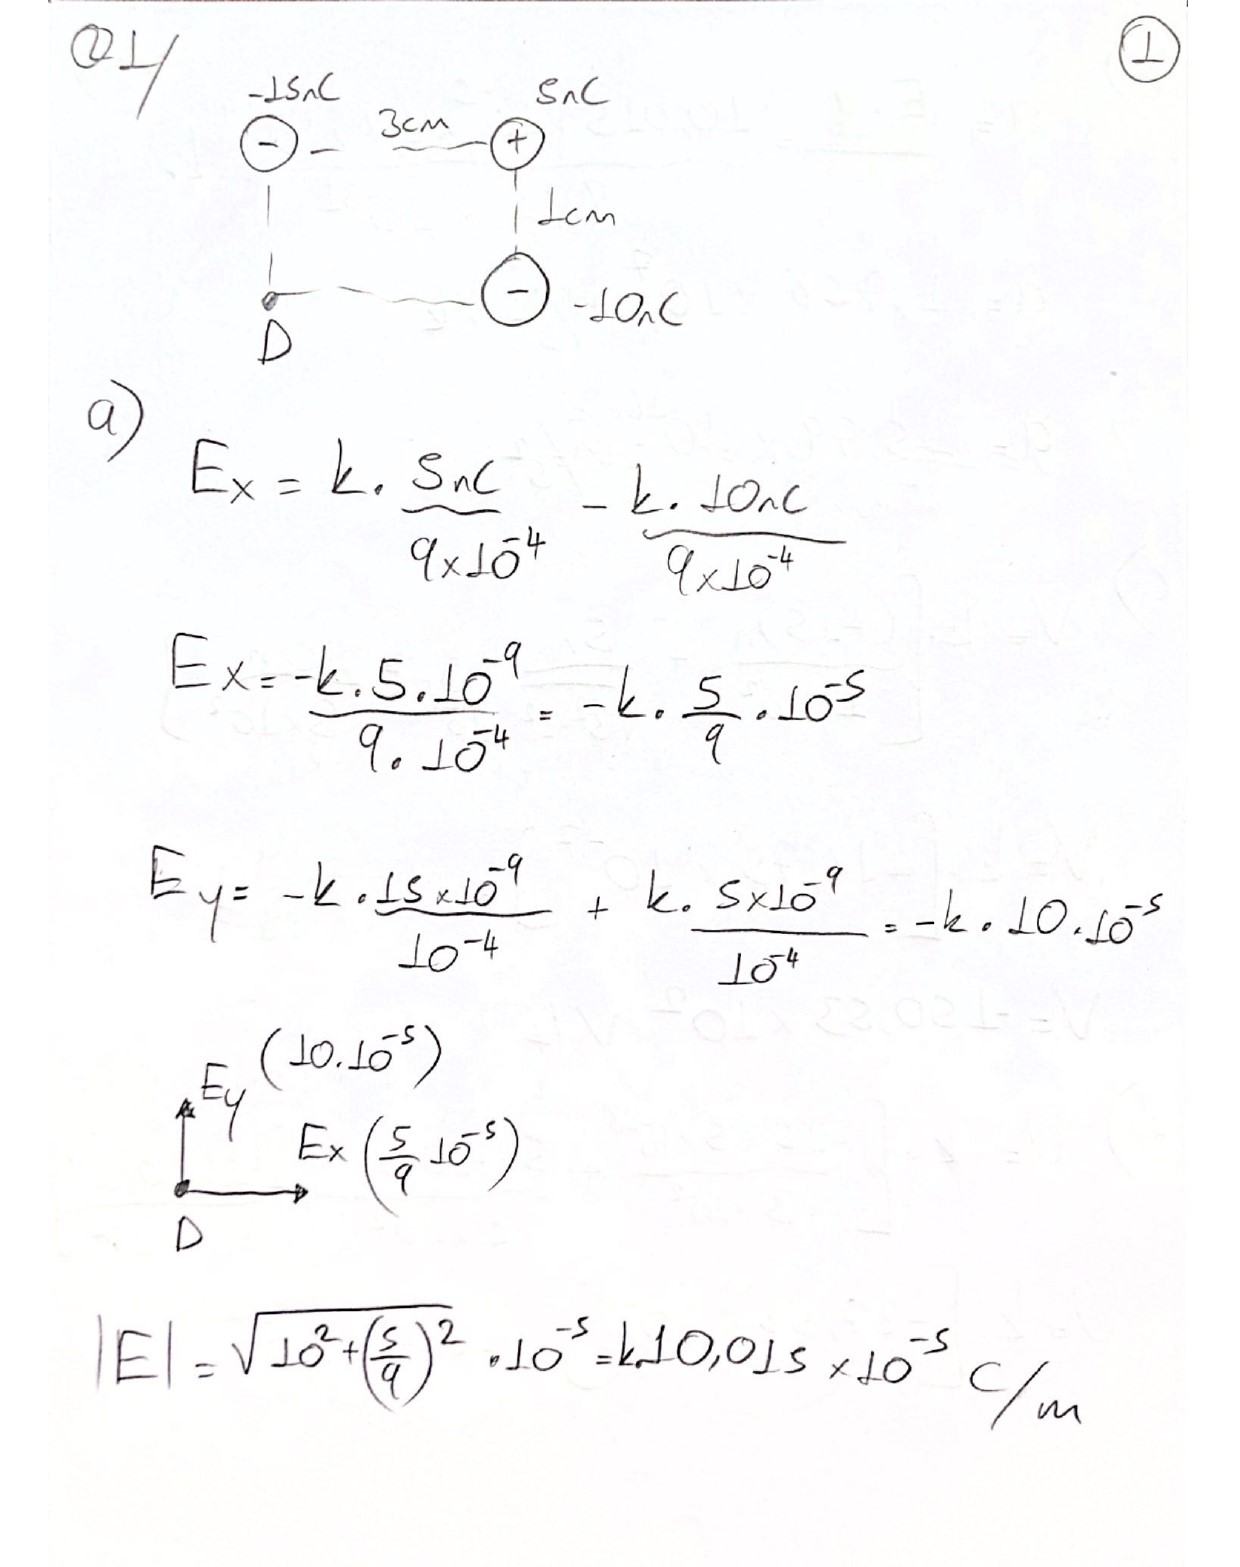 Q1/
1
-15nC
5nC
3cm
-
+
1cm
-
-10nC
D
a)
Ex = k. 5nC / 9x10^-4 - k. 10nC / 9x10^-4
Ex = -k.5.10^-9 / 9.10^-4 = -k. 5/9 .10^-5
Ey = -k.15x10^-9 / 10^-4 + k. 5x10^-9 / 10^-4 = -k. 10.10^-5
Ey (10.10^-5)
Ex (5/9 10^-5)
D
|E| = √(10^2+(5/9)^2) .10^-5 = k.10,015 x10^-5 C/m